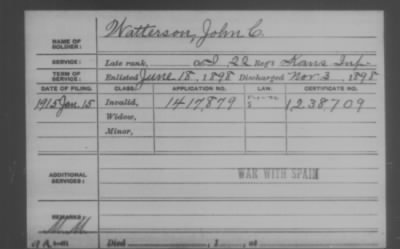 NAME OF SOLDIER: Watterson, John C.
SERVICE: Late rank, 22 Reg't Kans Inf
TERM OF SERVICE: Enlisted June 18, 1898 Discharged Nov. 3, 1898
DATE OF FILING. CLASS. APPLICATION NO. LAW. CERTIFICATE NO.
1915 Jan. 15 Invalid, 1417,879 1,238,709
Widow,
Minor,
ADDITIONAL SERVICES: WAR WITH SPAIN
REMARKS:
Died , 1 , at